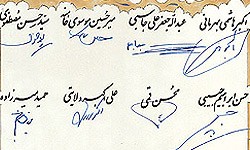 اکبر هاشمی بهرمانی عبداله جعفر علی جاسبی میرحسین موسوی خامنه سید حسن مصطفوی
حسن ابراهیم حبیبی محسن قمی علی اکبر ولایتی حمید میرزاده